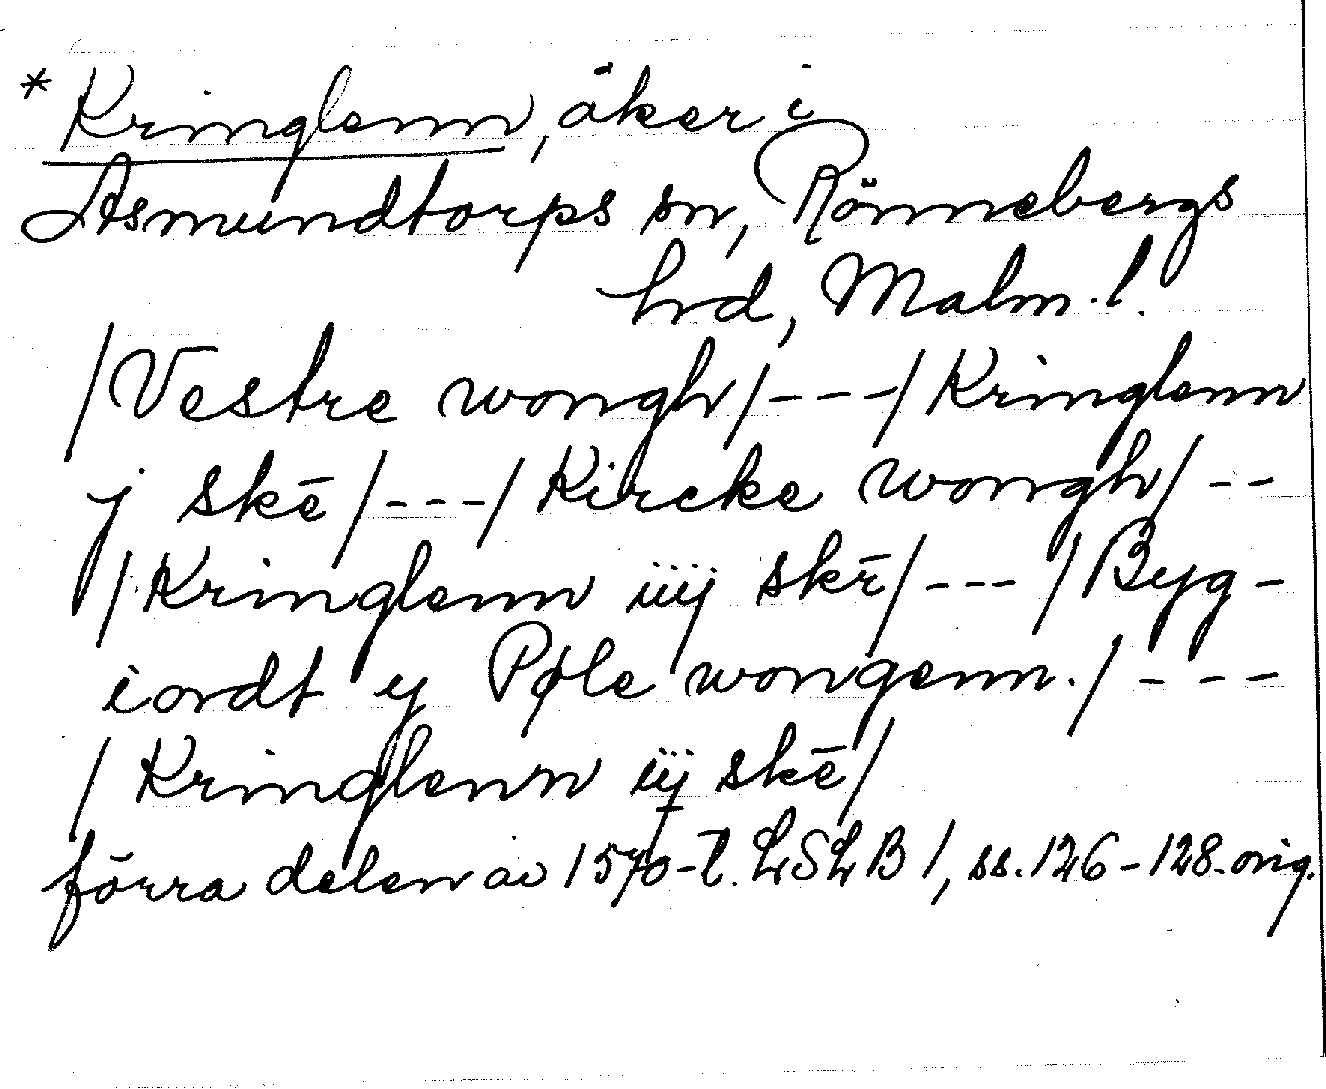 * Kringlenn, åker i
Asmundtorps sn, Rönnebergs
hd, Malm. l.
/Vestre wongh/---/Kringlenn
j skē/---/Kircke wongh/--
/Kringlenn iiij skē/---/Byg-
iordt ij Pøle wongenn./---
/Kringlenn iij skē/
förra delen av 1570-t. LSLB 1, ss. 126-128. orig.